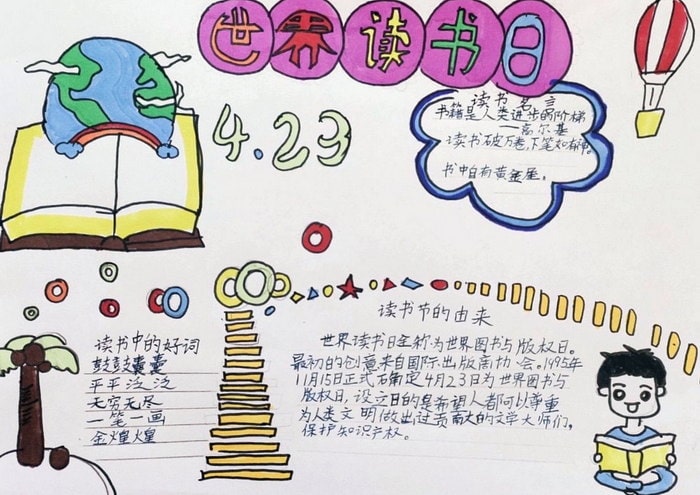 世界读书日
4.23
读书名言
书籍是人类进步的阶梯
——高尔基
读书破万卷,下笔如有神。
书中自有黄金屋。
读书中的好词
鼓鼓囊囊
平平泛泛
无穷无尽
一笔一画
金煌煌
读书节的由来
世界读书日全称为世界图书与版权日。
最初的创意来自国际出版商协会。1995年
11月15日正式确定4月23日为世界图书与
版权日,设立目的是希望人都可以尊重
为人类文明做出过贡献大的文学大师们,
保护知识产权。